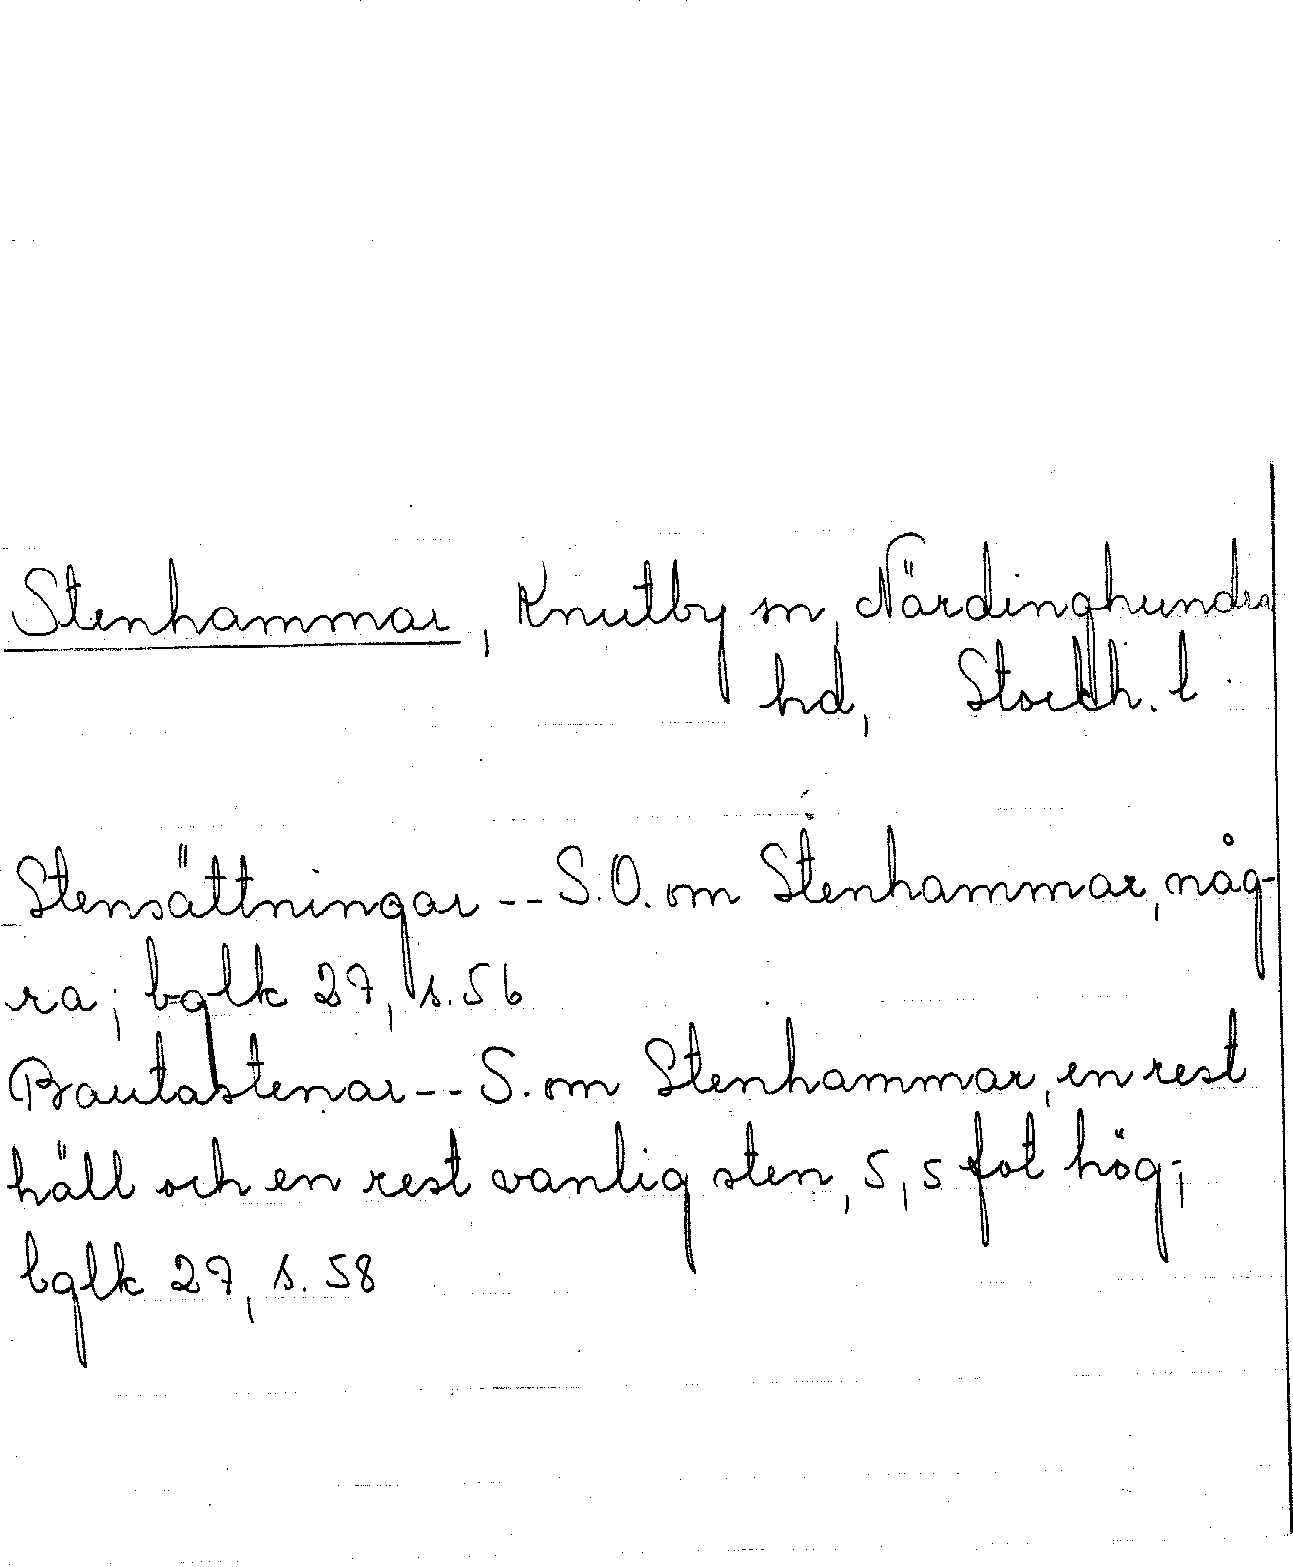 Stenhammar, Knutby sn, Närdinghundra
hd, Stockh. l
Stensättningar -- S.O. om Stenhammar, någ-
ra; bglk 27, s. 56
Bautastenar -- S. om Stenhammar, en rest
häll och en rest vanlig sten, 5,5 fot hög;
bglk 27, s. 58